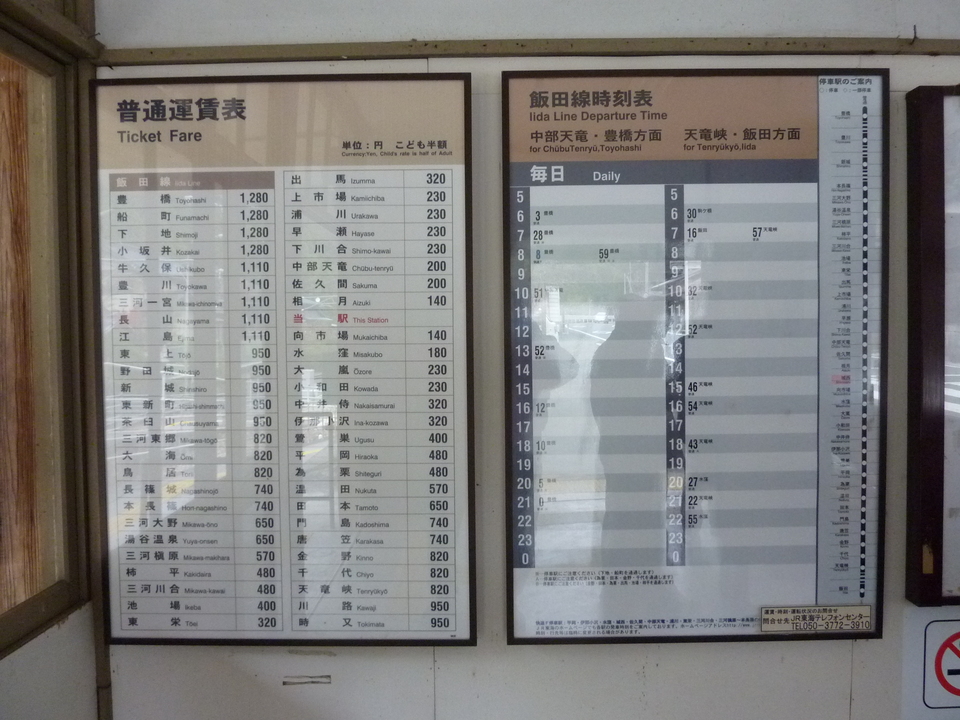 普通運賃表
Ticket Fare
単位：円 こども半額
Currency:Yen, Child's rate is half of Adult
飯田線 Iida Line
豊橋 Toyohashi 1,280
船町 Funamachi 1,280
下地 Shimoji 1,280
小坂井 Kozakai 1,280
牛久保 Ushikubo 1,110
豊川 Toyokawa 1,110
三河一宮 Mikawa-ichinomiya 1,110
長山 Nagayama 1,110
江島 Ejima 1,110
東上 Tōjō 950
野田城 Nodajō 950
新城 Shinshiro 950
東新町 Higashi-shimmachi 950
茶臼山 Chausuyama 950
三河東郷 Mikawa-tōgō 820
大海 Ōmi 820
鳥居 Torii 820
長篠城 Nagashinojō 740
本長篠 Hon-nagashino 740
三河大野 Mikawa-ōno 650
湯谷温泉 Yuya-onsen 650
三河槇原 Mikawa-makihara 570
柿平 Kakidaira 480
三河川合 Mikawa-kawai 480
池場 Ikeba 400
東栄 Tōei 320
出馬 Izumma 320
上市場 Kamiichiba 230
浦川 Urakawa 230
早瀬 Hayase 230
下川合 Shimo-kawai 230
中部天竜 Chūbu-tenryū 200
佐久間 Sakuma 200
相月 Aizuki 140
当駅 This Station
向市場 Mukaichiba 140
水窪 Misakubo 180
大嵐 Ōzore 230
小和田 Kowada 230
中井侍 Nakaisamurai 320
伊那小沢 Ina-kozawa 320
鶯巣 Ugusu 400
平岡 Hiraoka 480
為栗 Shiteguri 480
温田 Nukuta 570
田本 Tamoto 650
門島 Kadoshima 740
唐笠 Karakasa 740
金野 Kinno 820
千代 Chiyo 820
天竜峡 Tenryūkyō 820
川路 Kawaji 950
時又 Tokimata 950
飯田線時刻表
Iida Line Departure Time
中部天竜・豊橋方面
for ChūbuTenryū,Toyohashi
天竜峡・飯田方面
for Tenryūkyō,Iida
毎日 Daily
5 5
6 3 豊橋 6 30 駒ケ根
7 28 豊橋 7 16 飯田 57 天竜峡
8 8 豊橋 59 豊橋 8
9 9
10 51 10 32 天竜峡
11 11
12 12 52 天竜峡
13 52 豊橋 13
14 14
15 15 46 天竜峡
16 12 16 54 天竜峡
17 17
18 10 18 43 天竜峡
19 19
20 5 20 27 水窪
21 0 21 22 天竜峡
22 22 55 水窪
23 23
0 0
停車駅のご案内
運賃・時刻・運転状況のお問合せ
問合せ先 JR東海テレフォンセンター
TEL050-3772-3910